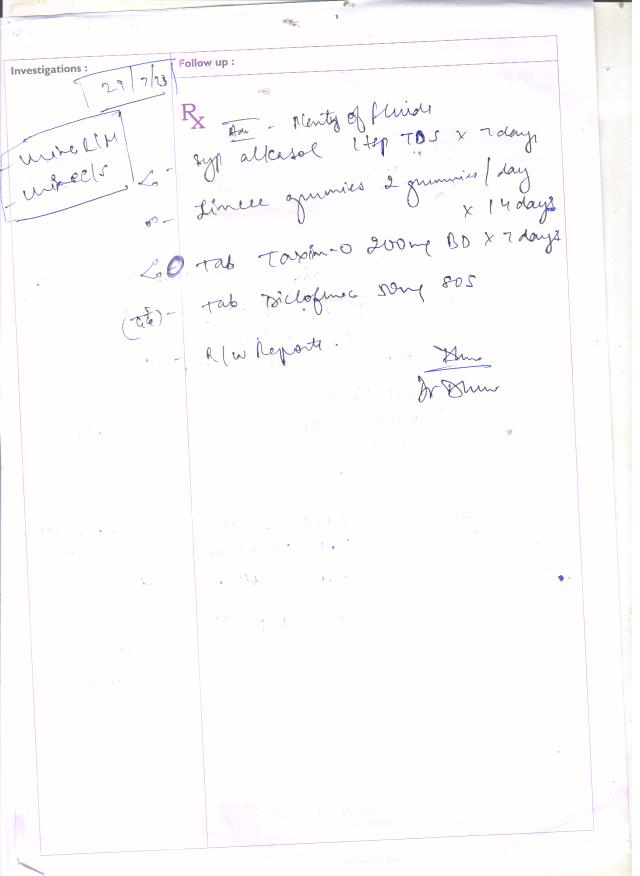 Investigations :
Follow up :
29/7/23
Rx
Adv - Plenty of fluids
- urine R/M
- urine c/s
- Syp alkasol 1 tsp TDS x 7 days
- Limcee gummies 2 gummies/day
x 14 days
Tab Taxim-O 200mg BD x 7 days
- Tab Diclofenac 50mg SOS
- R/w Reports.
Dr